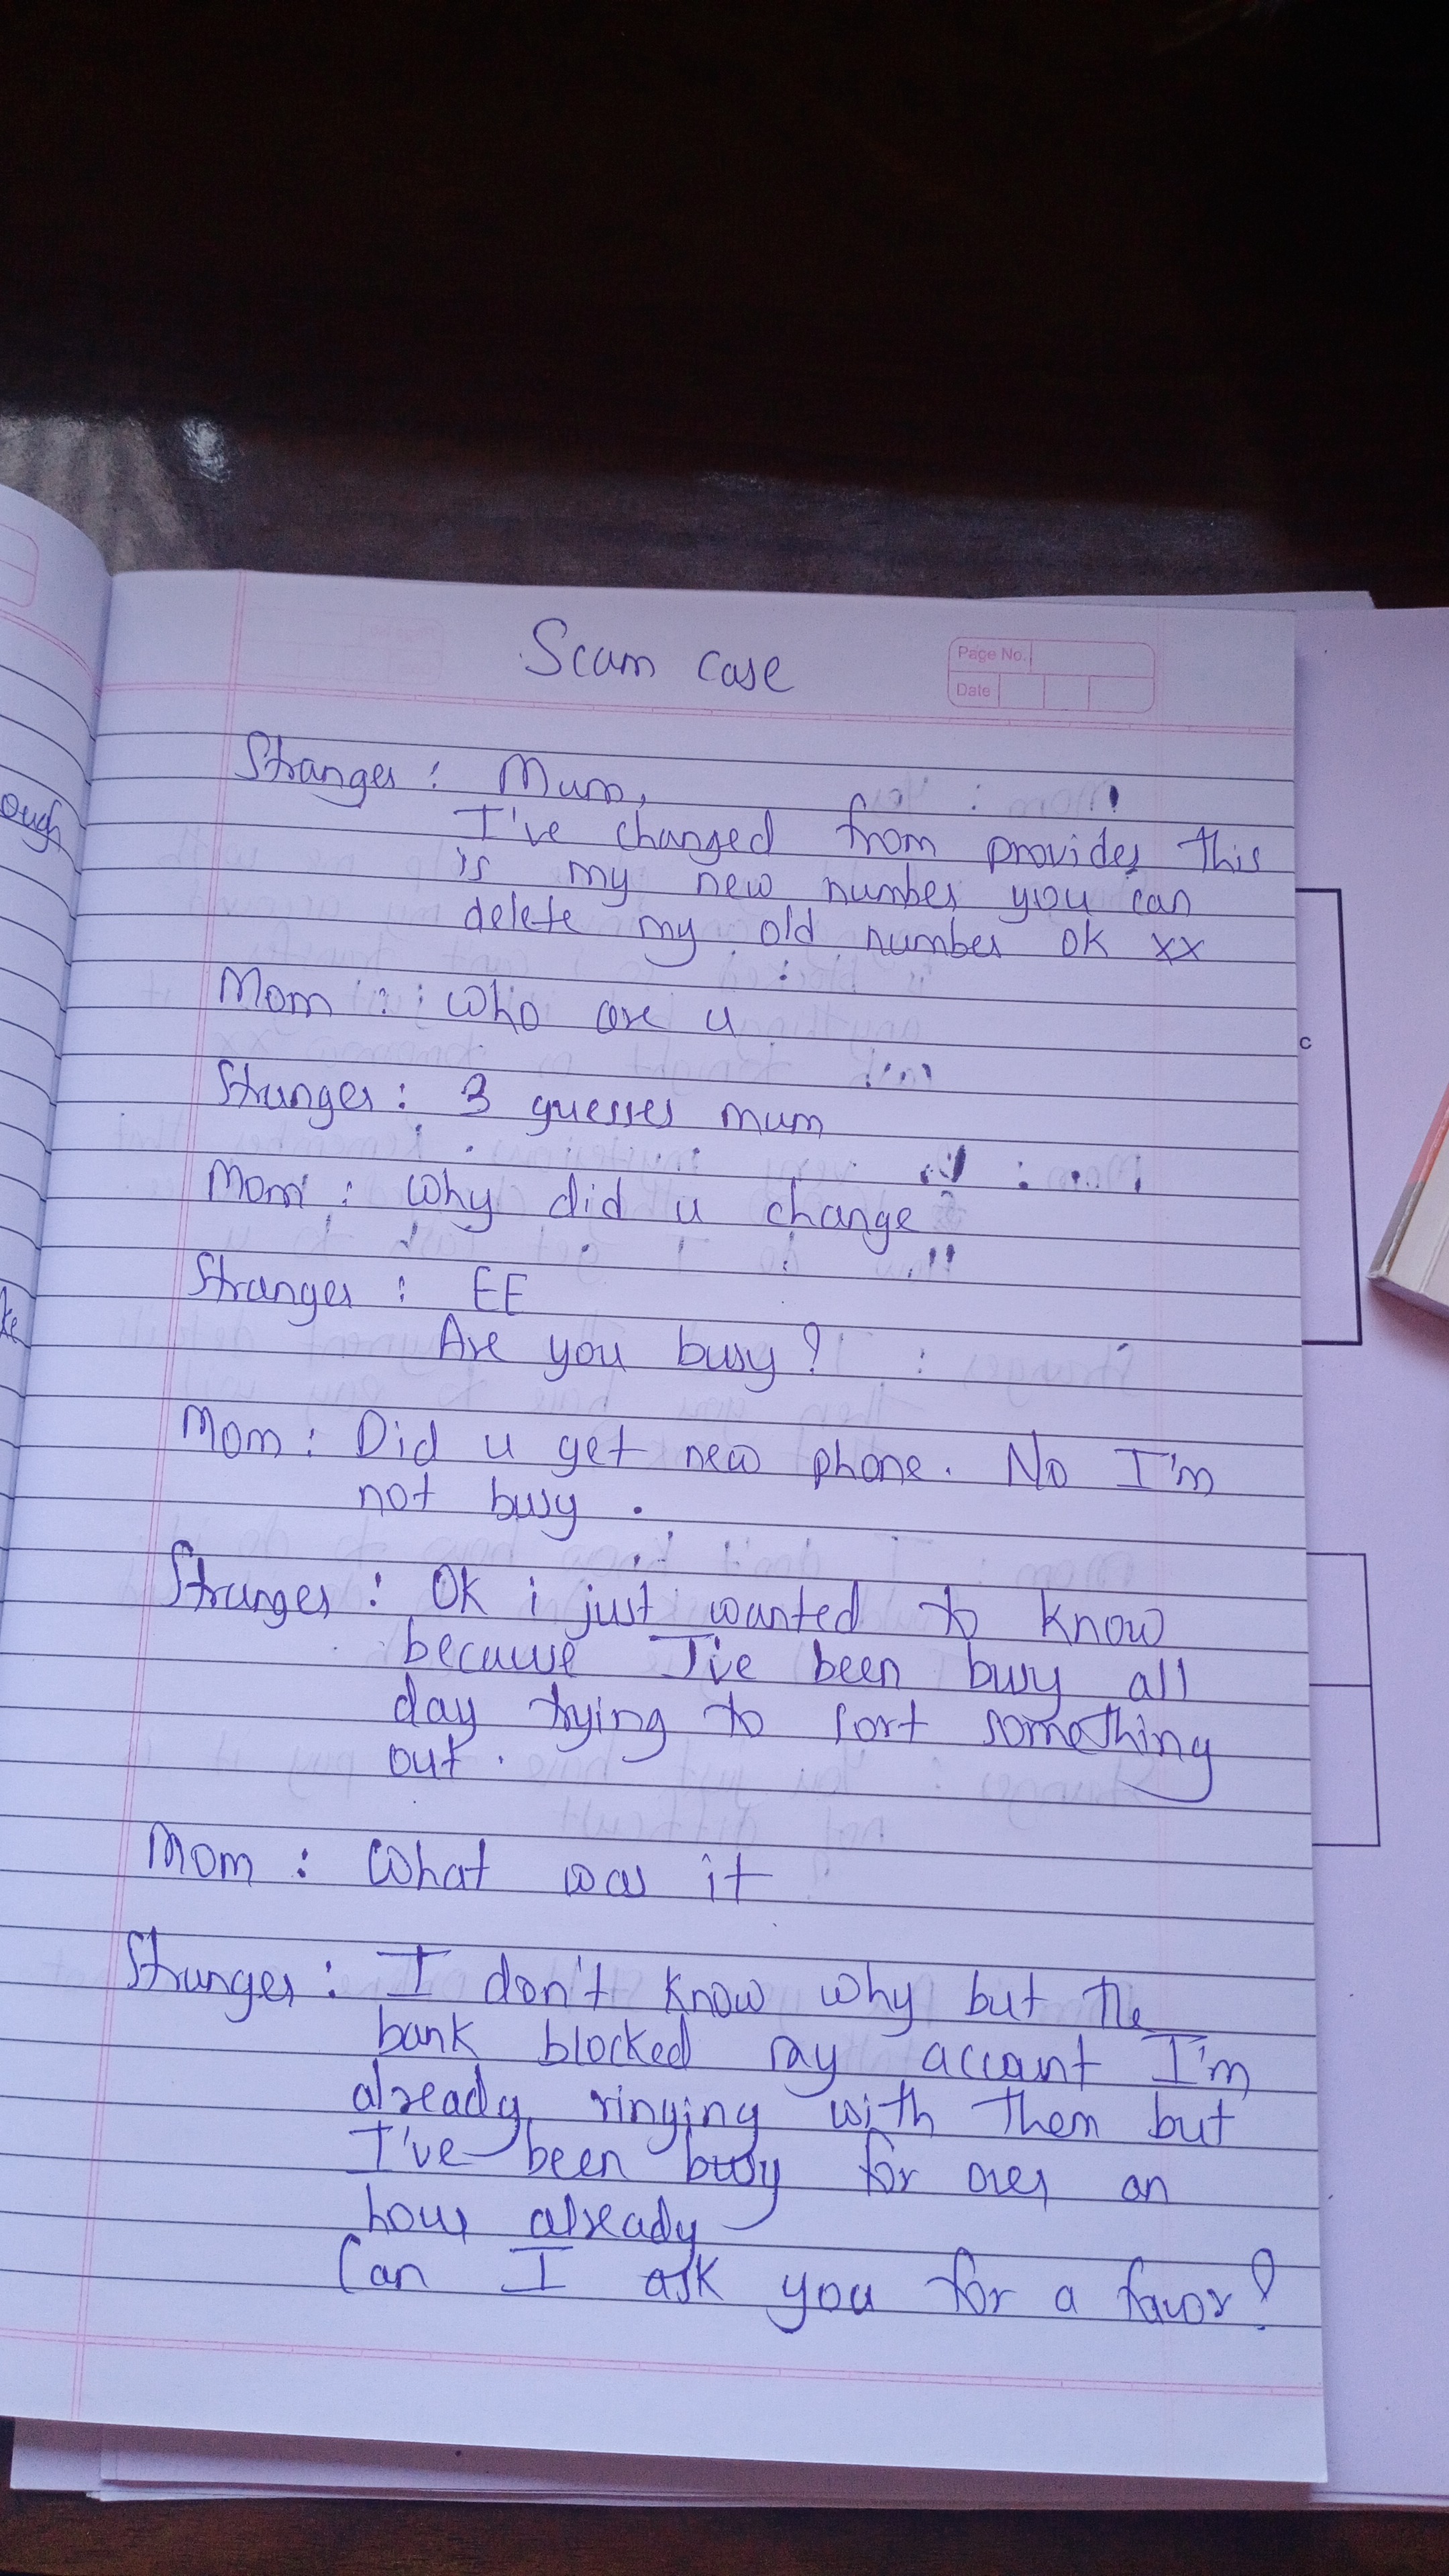 Scam case
Page No.
Date
Stranger : Mum,
I've changed from provider this
is my new number you can
delete my old number ok xx
Mom : who are u
Stranger : 3 guesses mum
Mom : Why did u change
Stranger : EE
Are you busy?
Mom : Did u get new phone. No I'm
not busy.
Stranger : Ok i just wanted to know
because I've been busy all
day trying to sort something
out.
Mom : What was it
Stranger : I don't know why but the
bank blocked my account I'm
already ringing with them but
I've been busy for over an
hour already
Can I ask you for a favor?
ough
ke
c